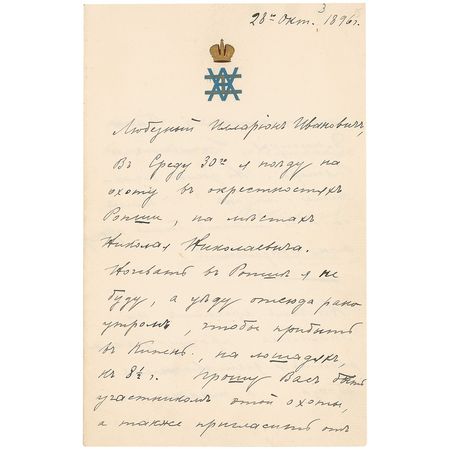 28го Окт. 1896г.
3
Любезный Илларіонъ Ивановичъ,
Въ Среду 30го я поѣду на
охоту въ окрестностяхъ
Ропши, на мѣстахъ
Николая Николаевича.
Ночевать въ Ропшѣ я не
буду, а уѣду отсюда рано
утромъ, чтобы прибыть
въ Кипень, на лошадяхъ,
къ 8½ г. Прошу Васъ быть
участникомъ этой охоты,
а также пригласить отъ